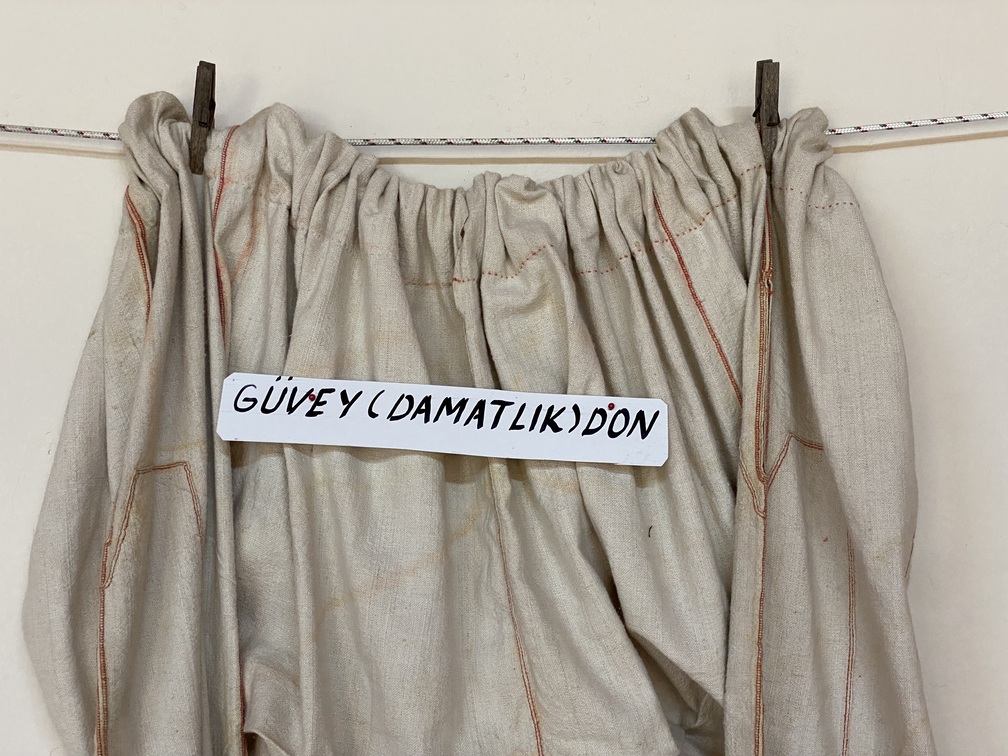 GÜVEY (DAMATLIK) DON